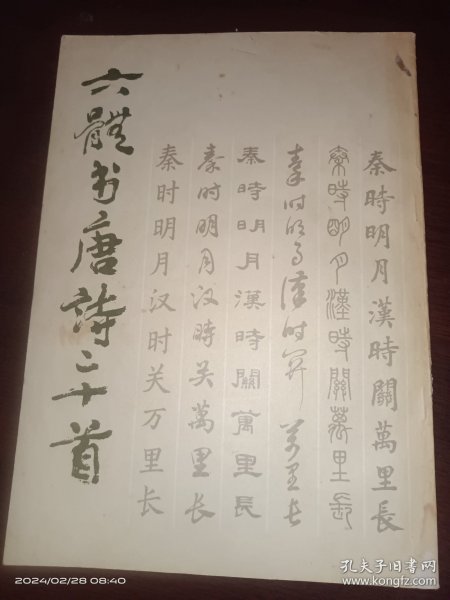 六體书唐詩二十首
秦時明月漢時關萬里長
秦時明月漢時關萬里長
秦时明月漢时關萬里长
秦時明月漢時關萬里長
秦时明月汉時关萬里长
秦时明月汉时关万里长
2024/02/28 08:40
孔夫子旧书网
www.kongfz.com